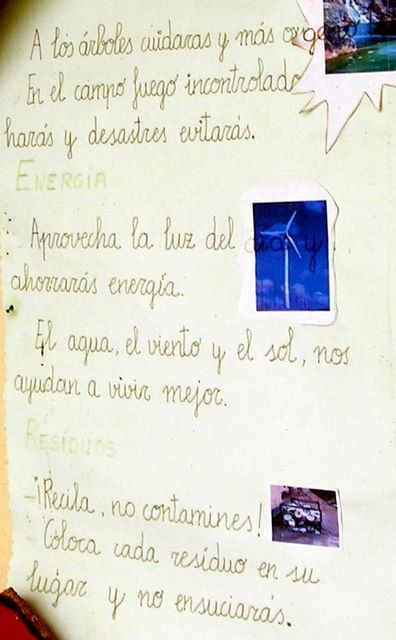 A los árboles cuidaras y más oxígeno
En el campo fuego incontrolado
harás y desastres evitarás.
ENERGÍA
Aprovecha la luz del día y
ahorrarás energía.
El agua, el viento y el sol, nos
ayudan a vivir mejor.
RESÍDUOS
-¡Recila, no contamines!
-Coloca cada resíduo en su
lugar y no ensuciarás.